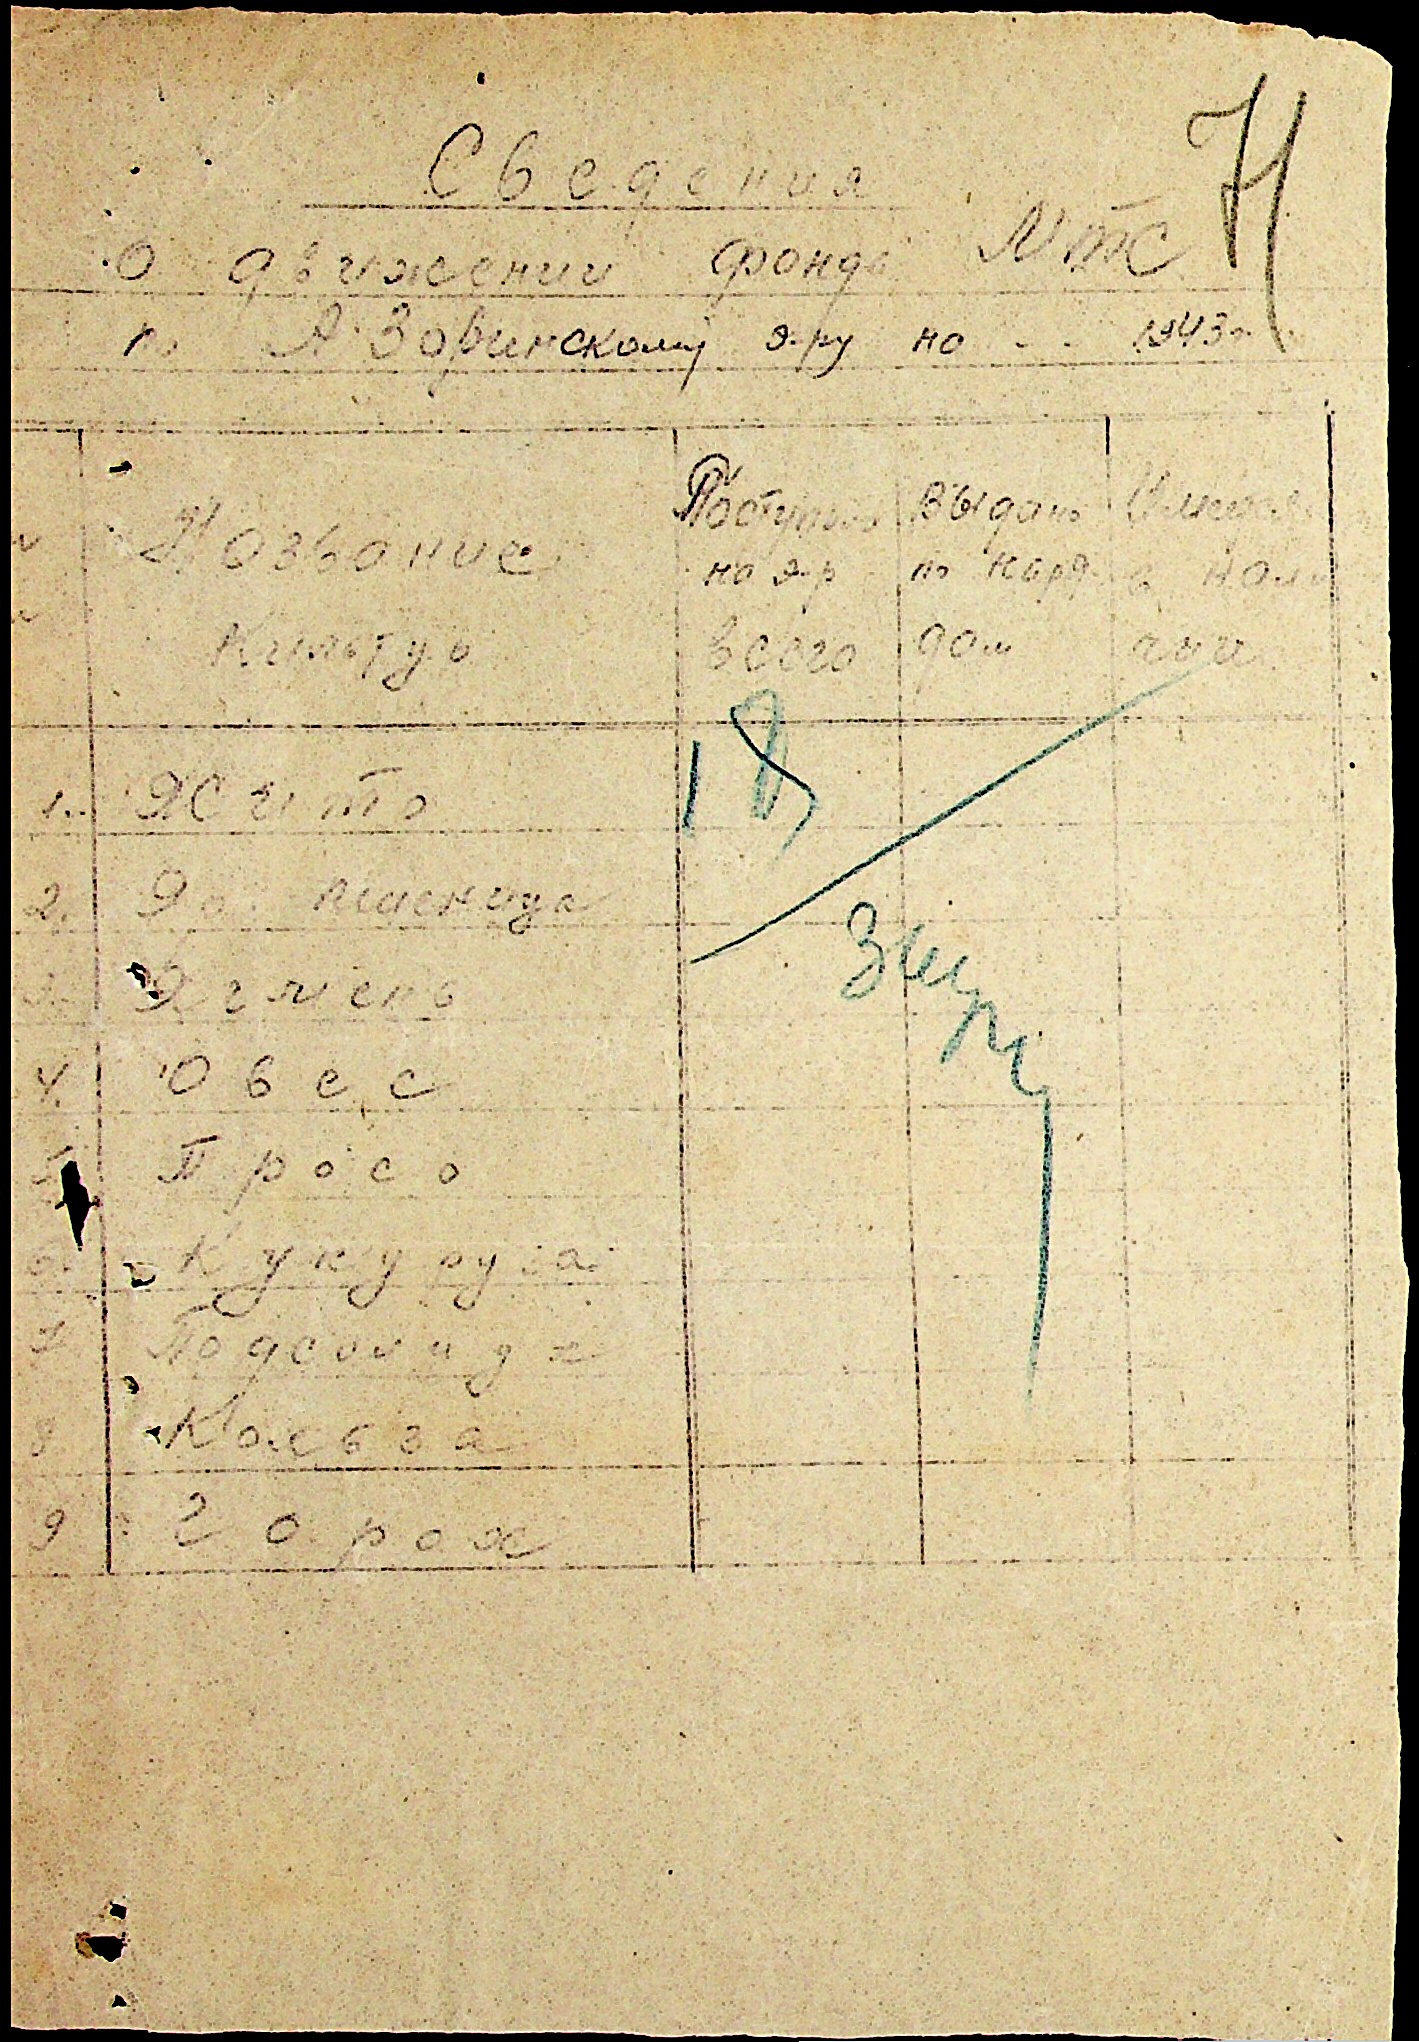 71
Сведения
О движении фонда МТС
по А-Заринскому э-ру на 1943г
Название
Культур
Поступило
на э-р
всего
Выдано
по наря-
дам
Имеется
в нали
чии
1. Жито
2. Яр. пшеница
3. Ячмень
4. Овес
5. Просо
6. Кукуруза
7. Подсолнух
8 Кользa
9 Горох